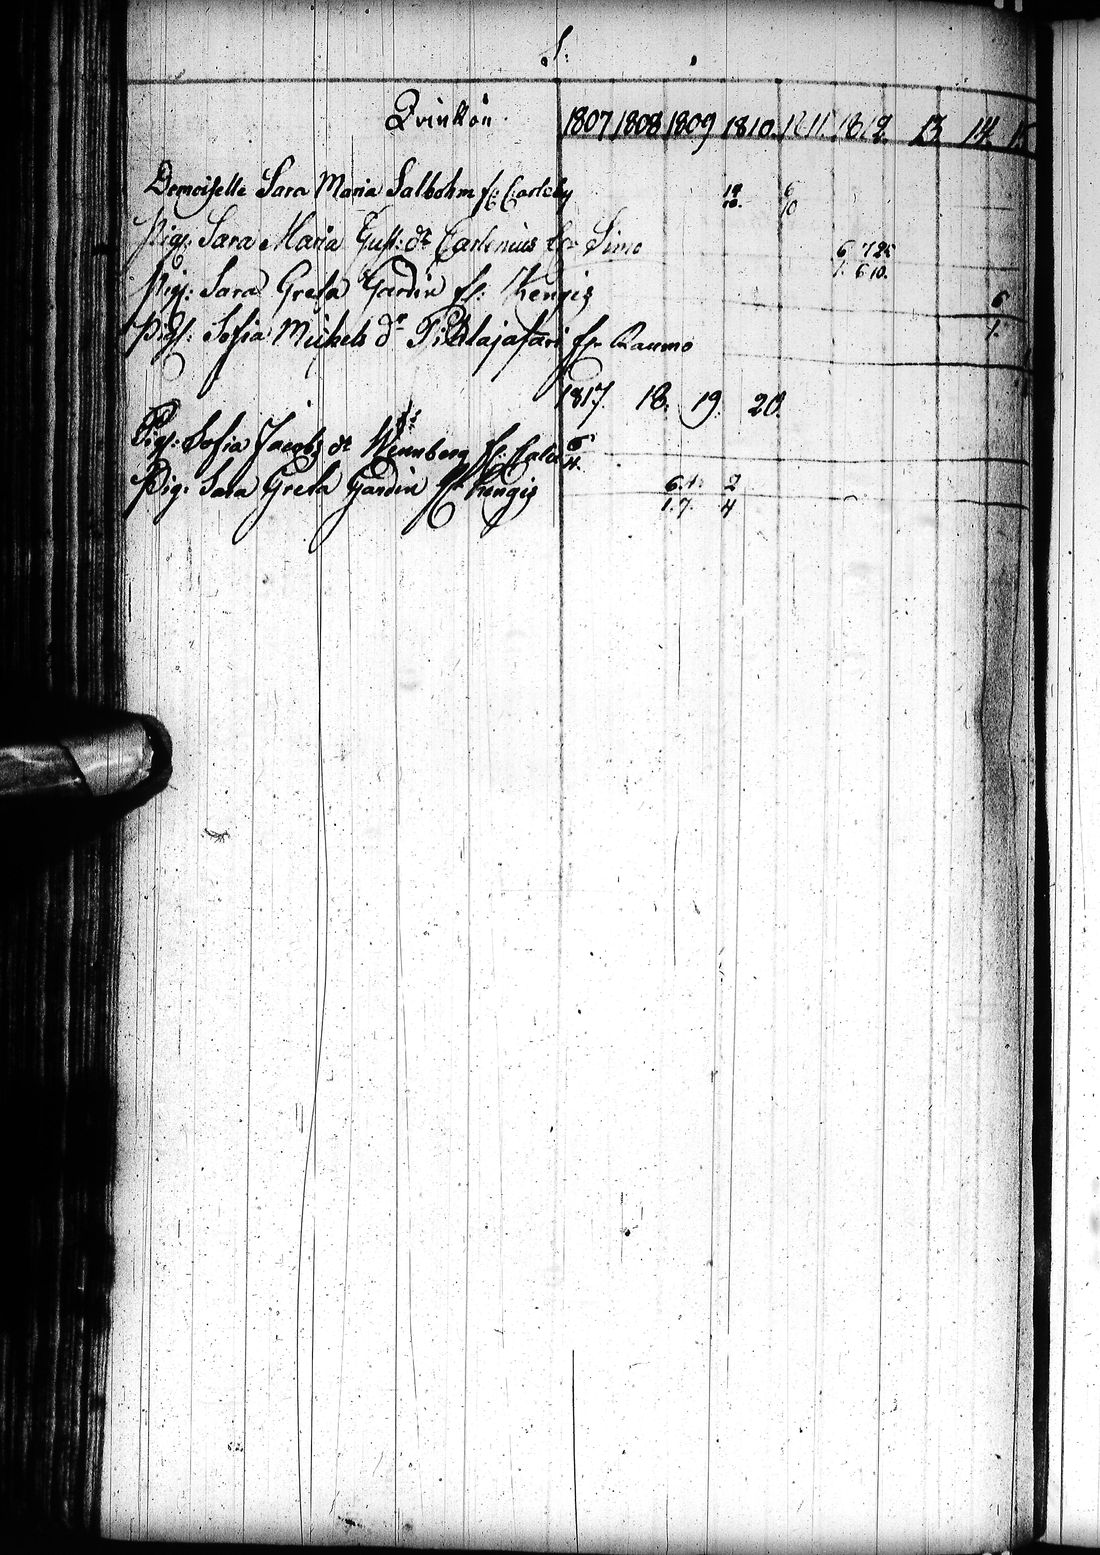 S:
Qvinkön. 1807 1808 1809 1810. 1811. 1812. 13. 14. 15.
Demoiselle Sara Maria Salbohm fr: Carleby 19/10. 6/10
Pig: Sara Maria Gust: dr Carlenius fr: Simo 6/1. 7/6 25/10.
Pig: Sara Greta Gardin fr: Kengis 6/1.
Pig: Sofia Michels dr fr. Raumo
1817. 18. 19. 20.
Pig: Sofia Jacobs dr Wennberg fr: 6/4.
Pig: Sara Greta Gardin fr Kengis 6/1. 1/7. 2/4